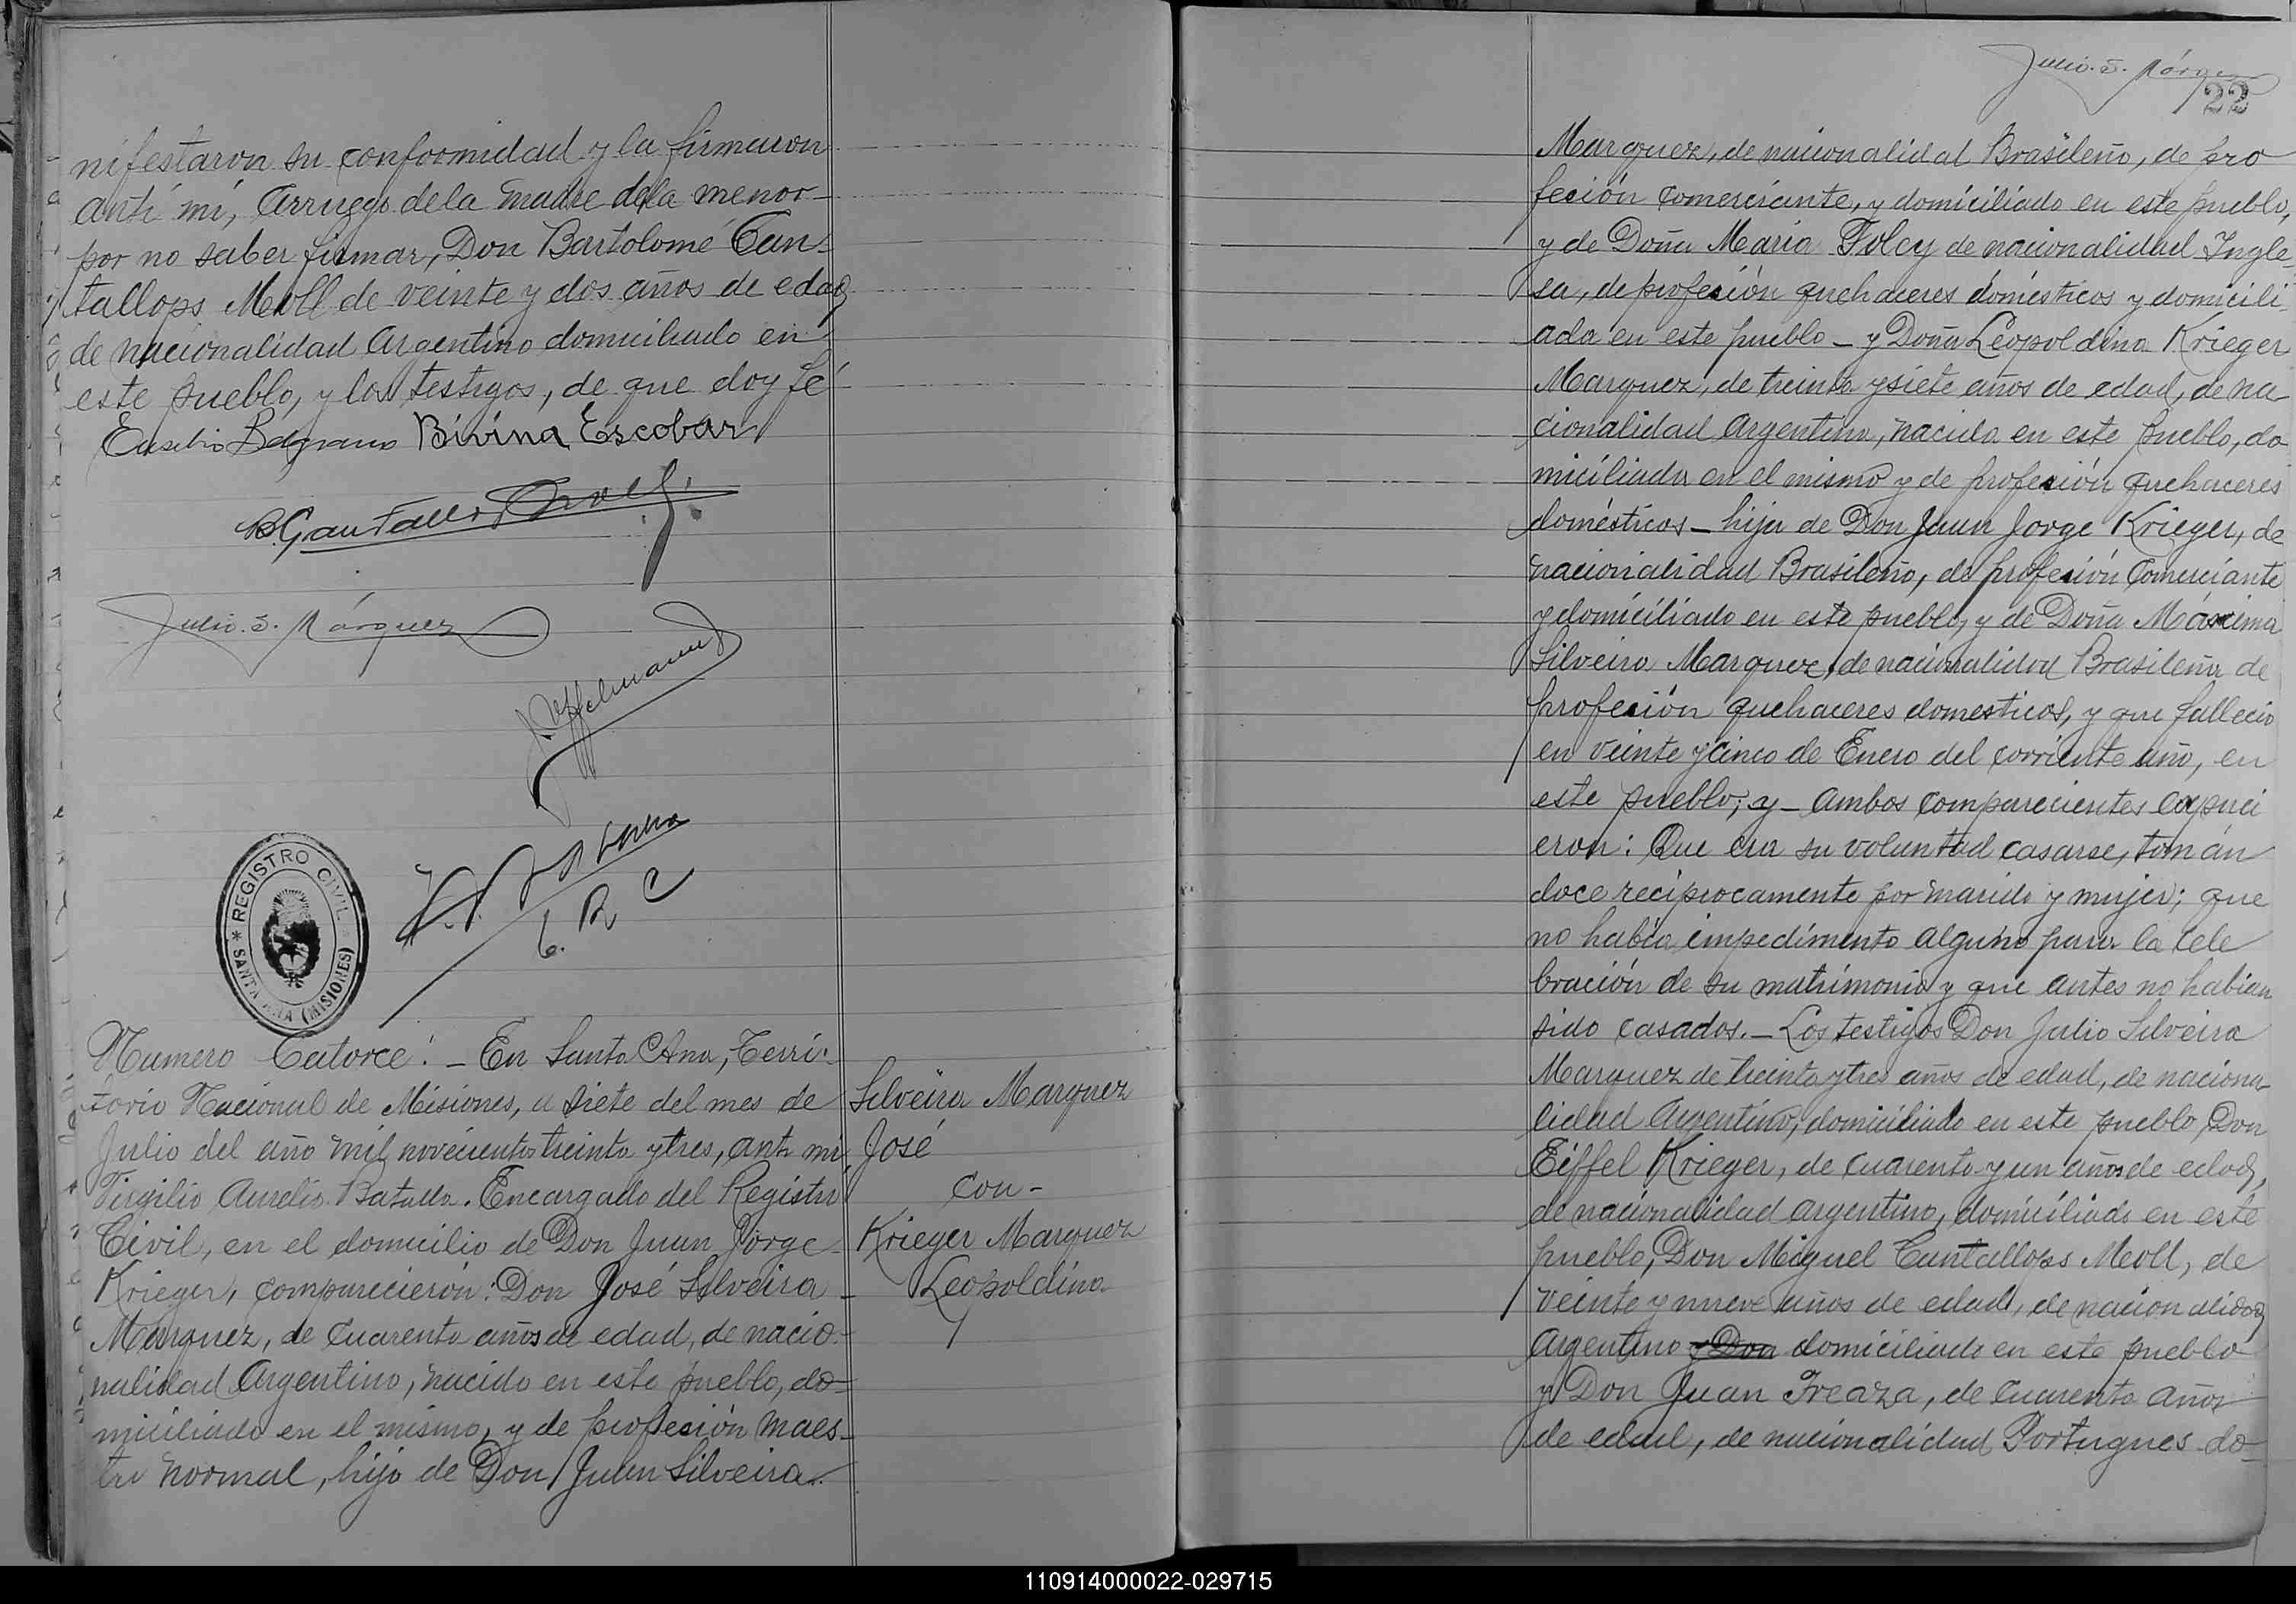 nifestaron su conformidad y la firmaron
anti mi, Arruego de la madre de la menor
por no saber firmar, Don Bartolomé Can-
tallops Moll de veinte y dos años de edad
de nacionalidad Argentino domiciliado en
este pueblo, y los testigos, de que doy fé
Eusebio Belgrano Bivina Escobar
B. Cantallops Moll
Julio. S. Márquez
E. R C
REGISTRO CIVIL
SANTA ANA (MISIONES)
Numero Catorce: - En Santa Ana, Terri-
torio Nacional de Misiones, a siete del mes de
Julio del año mil novecientos treinta y tres, ante mi
Virgilio Aurelio Batalla. Encargado del Registro
Civil, en el domicilio de Don Juan Jorge
Krieger, comparecierón: Don José Silveira
Marquez, de Cuarenta años de edad, de nacio-
nalidad Argentino, nacido en este pueblo, do-
miciliado en el mismo, y de profesión maes-
tro Normal, hijo de Don Juan Silveira
Silveira Marquez
José
con-
Krieger Marquez
Leopoldina
Julio. S. Márquez
22
Marquez, de nacionalidad Brasileño, de pro
feción comerciante, y domiciliado en este pueblo,
y de Doña Maria Foley de nacionalidad Ingle
sa, de profeción quehaceres domésticos y domicili-
ada en este pueblo - y Doña Leopoldina Krieger
Marquez, de treinta y siete años de edad, de na
cionalidad Argentina, nacida en este pueblo, do
miciliada en el mismo y de profeción quehaceres
domésticos - hija de Don Juan Jorge Krieger, de
nacionalidad Brasileño, de profeción Comerciante
y domiciliado en este pueblo, y de Doña Máxima
Silveira Marquez, de nacionalidad Brasileña de
profeción quehaceres domesticos, y que fallecio
en veinte y cinco de Enero del corriente año, en
este pueblo; y - ambos comparecientes expuci
eron: Que era su voluntad casarse, tomán
doce reciprocamente por marido y mujer; que
no había impedimento alguno para la cele
bración de su matrimonio y que antes no habian
sido casados. - Los testigos Don Julio Silveira
Marquez de treinta y tres años de edad, de naciona
lidad Argentino, domiciliado en este pueblo, Don
Eiffel Krieger, de cuarenta y un años de edad,
de nacionalidad argentino, domiciliado en este
pueblo, Don Miguel Cantallops Moll, de
veinte y nueve años de edad, de nacionalidad
Argentino y Don domiciliado en este pueblo
y Don Juan Freaza, de cuarenta años
de edad, de nacionalidad Portugues do-
110914000022-029715